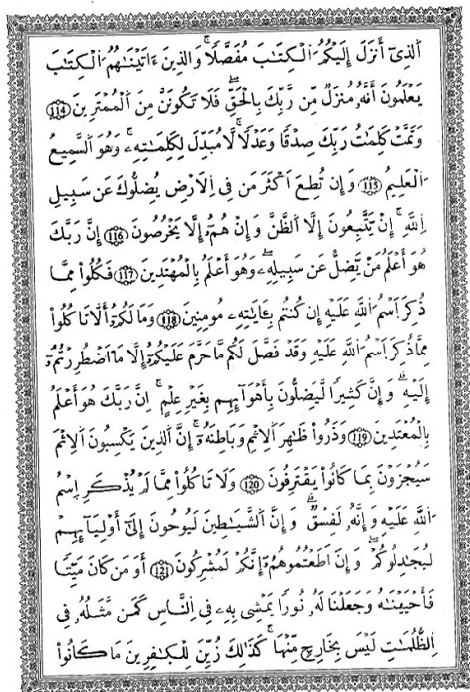 اَلذِىٓ أَنزَلَ إِلَيْكُمُ اُلْكِتَٰبَ مُفَصَّلًا وَالذِينَ ءَاتَيْنَٰهُمُ اُلْكِتَٰبَ
يَعْلَمُونَ أَنَّهُۥ مُنزَلٌ مِّن رَّبِّكَ بِالْحَقِّ فَلَا تَكُونَنَّ مِنَ اَلْمُمْتَرِينَ 114
وَتَمَّتْ كَلِمَاتُ رَبِّكَ صِدْقًا وَعَدْلًا لَّا مُبَدِّلَ لِكَلِمَاتِهِۦ وَهُوَ اَلسَّمِيعُ
اَلْعَلِيمُ 115 وَإِن تُطِعَ اَكْثَرَ مَن فِى اِلَارْضِ يُضِلُّوكَ عَن سَبِيلِ
اِللَّهِ إِنْ يَتَّبِعُونَ إِلَّا اَلظَّنَّ وَإِنْ هُمُۥٓ إِلَّا يَخْرُصُونَ 116 إِنَّ رَبَّكَ
هُوَ أَعْلَمُ مَنْ يَّضِلُّ عَن سَبِيلِهِۦ وَهُوَ أَعْلَمُ بِالْمُهْتَدِينَ 117 فَكُلُوا۟ مِمَّا
ذُكِرَ اَسْمُ اُللَّهِ عَلَيْهِ إِن كُنتُم بِـَٔايَٰتِهِۦ مُومِنِينَ 118 وَمَا لَكُمُۥٓ أَلَّا تَاكُلُوا۟
مِمَّا ذُكِرَ اَسْمُ اُللَّهِ عَلَيْهِ وَقَدْ فَصَّلَ لَكُم مَّا حَرَّمَ عَلَيْكُمُۥٓ إِلَّا مَا اَضْطُرِرْتُمُۥٓ
إِلَيْهِ وَإِنَّ كَثِيرًا لَّيَضِلُّونَ بِأَهْوَآئِهِم بِغَيْرِ عِلْمٍ اِنَّ رَبَّكَ هُوَ أَعْلَمُ
بِالْمُعْتَدِينَ 119 وَذَرُوا۟ ظَٰهِرَ اَلِاثْمِ وَبَاطِنَهُۥٓ إِنَّ اَلذِينَ يَكْسِبُونَ اَلِاثْمَ
سَيُجْزَوْنَ بِمَا كَانُوا۟ يَقْتَرِفُونَ 120 وَلَا تَاكُلُوا۟ مِمَّا لَمْ يُذْكَرِ اِسْمُ
اُللَّهِ عَلَيْهِ وَإِنَّهُۥ لَفِسْقٌ وَإِنَّ اَلشَّيَٰطِينَ لَيُوحُونَ إِلَىٰٓ أَوْلِيَآئِهِمْ
لِيُجَٰدِلُوكُمْ وَإِنَ اَطَعْتُمُوهُمُۥٓ إِنَّكُمْ لَمُشْرِكُونَ 121 أَوَمَن كَانَ مَيِّتًا
فَأَحْيَيْنَٰهُ وَجَعَلْنَا لَهُۥ نُورًا يَمْشِى بِهِۦ فِى اِلنَّاسِ كَمَن مَّثَلُهُۥ فِى
اِلظُّلُمَٰتِ لَيْسَ بِخَارِجٍ مِّنْهَا كَذَٰلِكَ زُيِّنَ لِلْكَٰفِرِينَ مَا كَانُوا۟